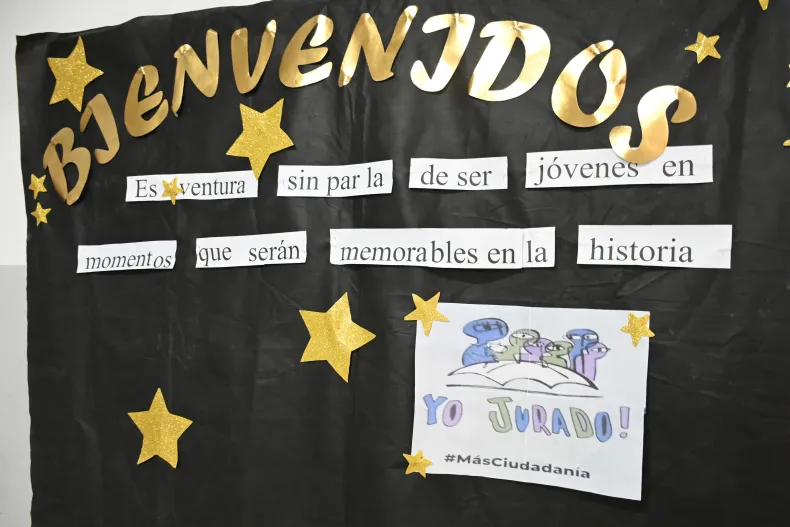 BIENVENIDOS
Es ventura sin par la de ser jóvenes en
momentos que serán memorables en la historia
YO JURADO!
#MásCiudadanía